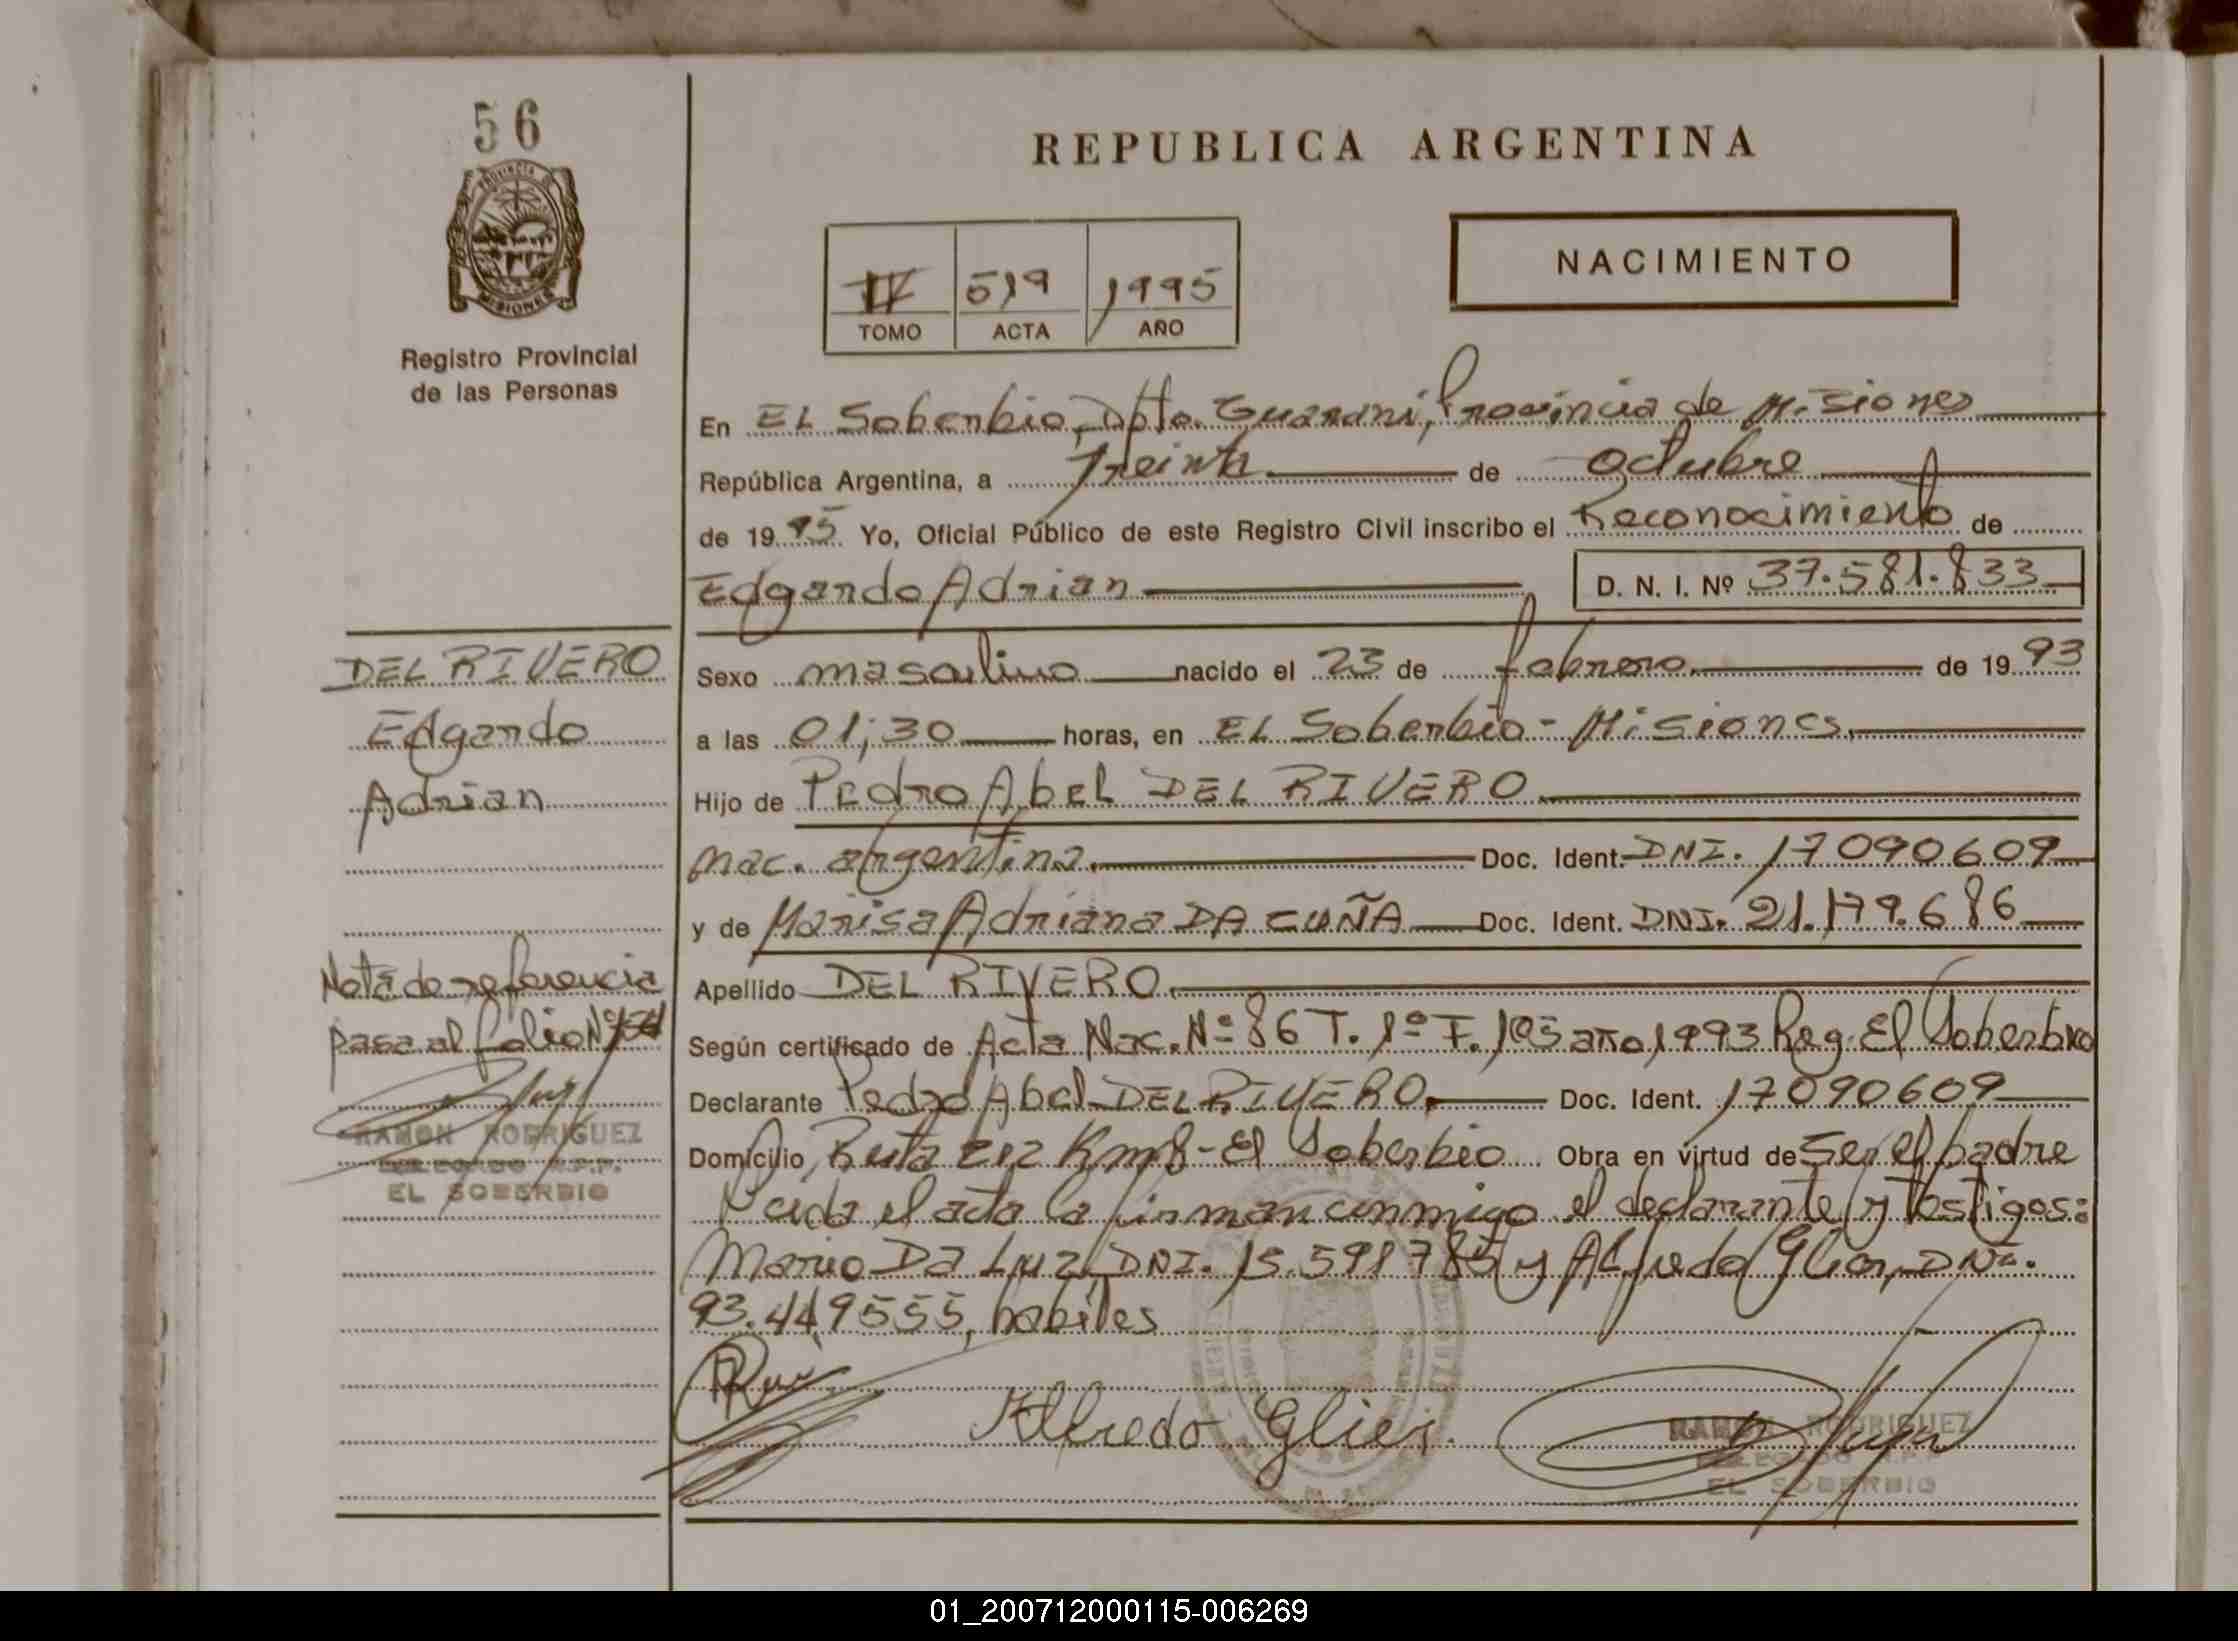 56
REPUBLICA ARGENTINA
PROVINCIA DE
MISIONES
Registro Provincial
de las Personas
IV 519 1995
TOMO ACTA AÑO
NACIMIENTO
En EL Soberbio, Dpto. Guarani, Provincia de Misiones
República Argentina, a Treinta de Octubre
de 19 95 Yo, Oficial Público de este Registro Civil inscribo el Reconocimiento de
Edgardo Adrian D. N. I. Nº 37.581.833
DEL RIVERO
Edgardo
Adrian
Sexo masculino nacido el 23 de febrero de 19 93
a las 01;30 horas, en EL Soberbio - Misiones
Hijo de Pedro Abel DEL RIVERO
nac. argentina. Doc. Ident. DNI. 17090609
y de Marisa Adriana DA CUÑA Doc. Ident. DNI. 21.179.686
Apellido DEL RIVERO
Según certificado de Acta Nac. Nº 86 T. 1º F. 103 año 1993 Reg. El Soberbio
Declarante Pedro Abel DEL RIVERO. Doc. Ident. 17090609
Domicilio Ruta 212 Km 8 - El Soberbio Obra en virtud de Ser el padre
Leida el acta la firman conmigo el declarante y testigos:
Mario Da Luz DNI. 15.591785 y Alfredo Glier, DNI.
93.449555, habiles
Nota de referencia
pasa al folio Nº
RAMON RODRIGUEZ
DELEGADO R.P.P.
EL SOBERBIO
Alfredo Glier
RAMON RODRIGUEZ
DELEGADO R.P.P.
EL SOBERBIO
01_200712000115-006269